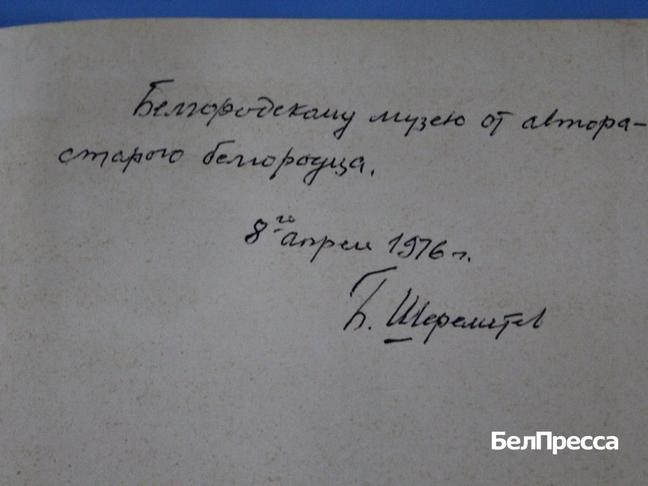 Белгородскому музею от автора-
старого белгородца.
8го апреля 1976 г.
Б. Шереметев
БелПресса